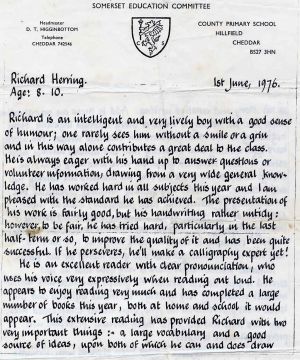 SOMERSET EDUCATION COMMITTEE
Headmaster
D. T. HIGGINBOTTOM
Telephone
CHEDDAR 742546
COUNTY PRIMARY SCHOOL
HILLFIELD
CHEDDAR
BS27 3HN
Richard Herring.
1st June, 1976.
Age: 8.10.
Richard is an intelligent and very lively boy with a good sense
of humour; one rarely sees him without a smile or a grin
and in this way alone contributes a great deal to the class.
He is always eager with his hand up to answer questions or
volunteer information, drawing from a very wide general know-
ledge. He has worked hard in all subjects this year and I am
pleased with the standard he has achieved. The presentation of
his work is fairly good, but his handwriting rather untidy;
however, to be fair, he has tried hard, particularly in the last
half-term or so, to improve the quality of it and has been quite
successful. If he perseveres, he'll make a calligraphy expert yet!
He is an excellent reader with clear pronounciation, who
uses his voice very expressively when reading out loud. He
appears to enjoy reading very much and has completed a large
number of books this year, both at home and school it would
appear. This extensive reading has provided Richard with two
very important things :- a large vocabulary and a good
source of ideas, upon both of which he can and does draw